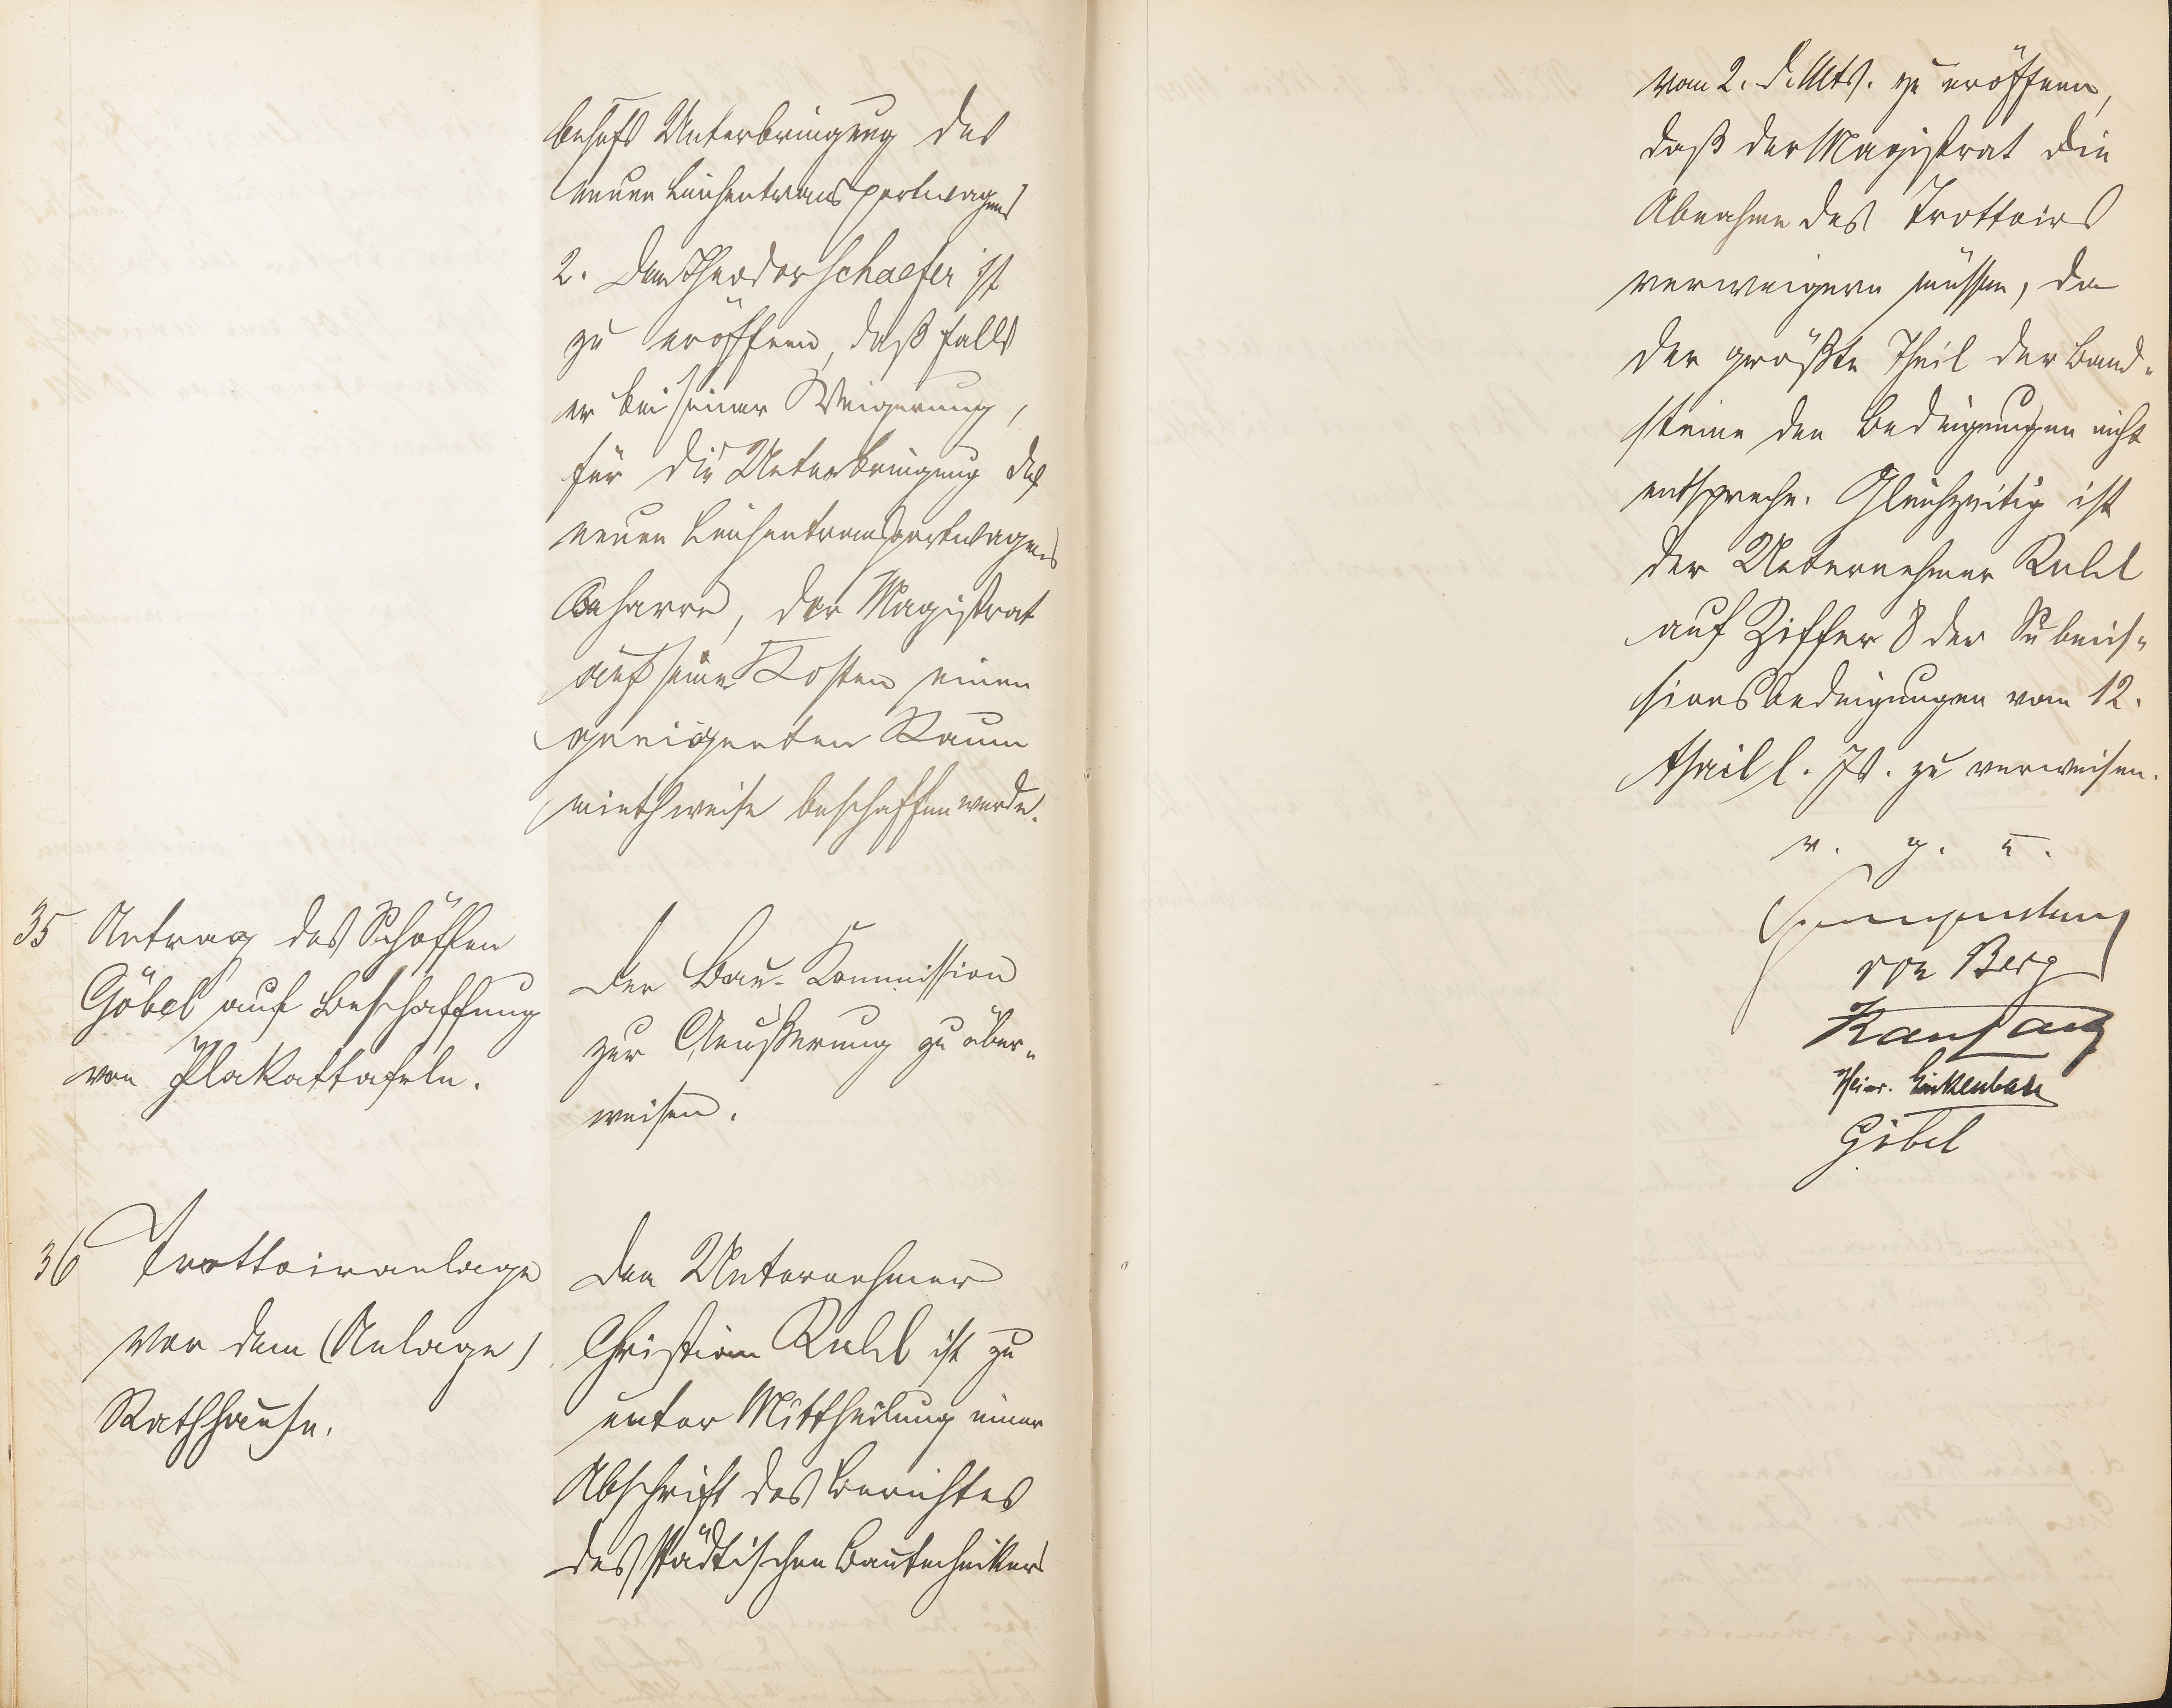 behufs Unterbringung des
neuen Leichentransportwagens
2. Dem Theodor Schaefer ist
zu eröffnen, daß falls
er bei seiner Weigerung,
für die Unterbringung des
neuen Leichentransportwagens
beharre, der Magistrat
auf seine Kosten einen
geeigneten Raum
miethweise beschaffen werde.
35 Antrag des Schöffen
Göbel auf Beschaffung
von Plakattafeln.
Der Bau-Kommission
zur Aeußerung zu über-
weisen.
36 Trottoiranlage
vor dem (Anlage)
Rathhause.
Dem Unternehmer
Christian Ruhl ist zu
unter Mittheilung einer
Abschrift des Berichtes
des städtischen Bautechnikers
vom 2. d. Mts. zu eröffnen,
daß der Magistrat die
Abnahme des Trottoirs
verweigern müsse, da
der größte Theil der Band-
steine den Bedingungen nicht
entspreche. Gleichzeitig ist
der Unternehmer Ruhl
auf Ziffer 8 der Submis-
sionsbedingungen vom 12.
April l. Js. zu verweisen.
v. g. u.
von Berg
Heinr.
Göbel